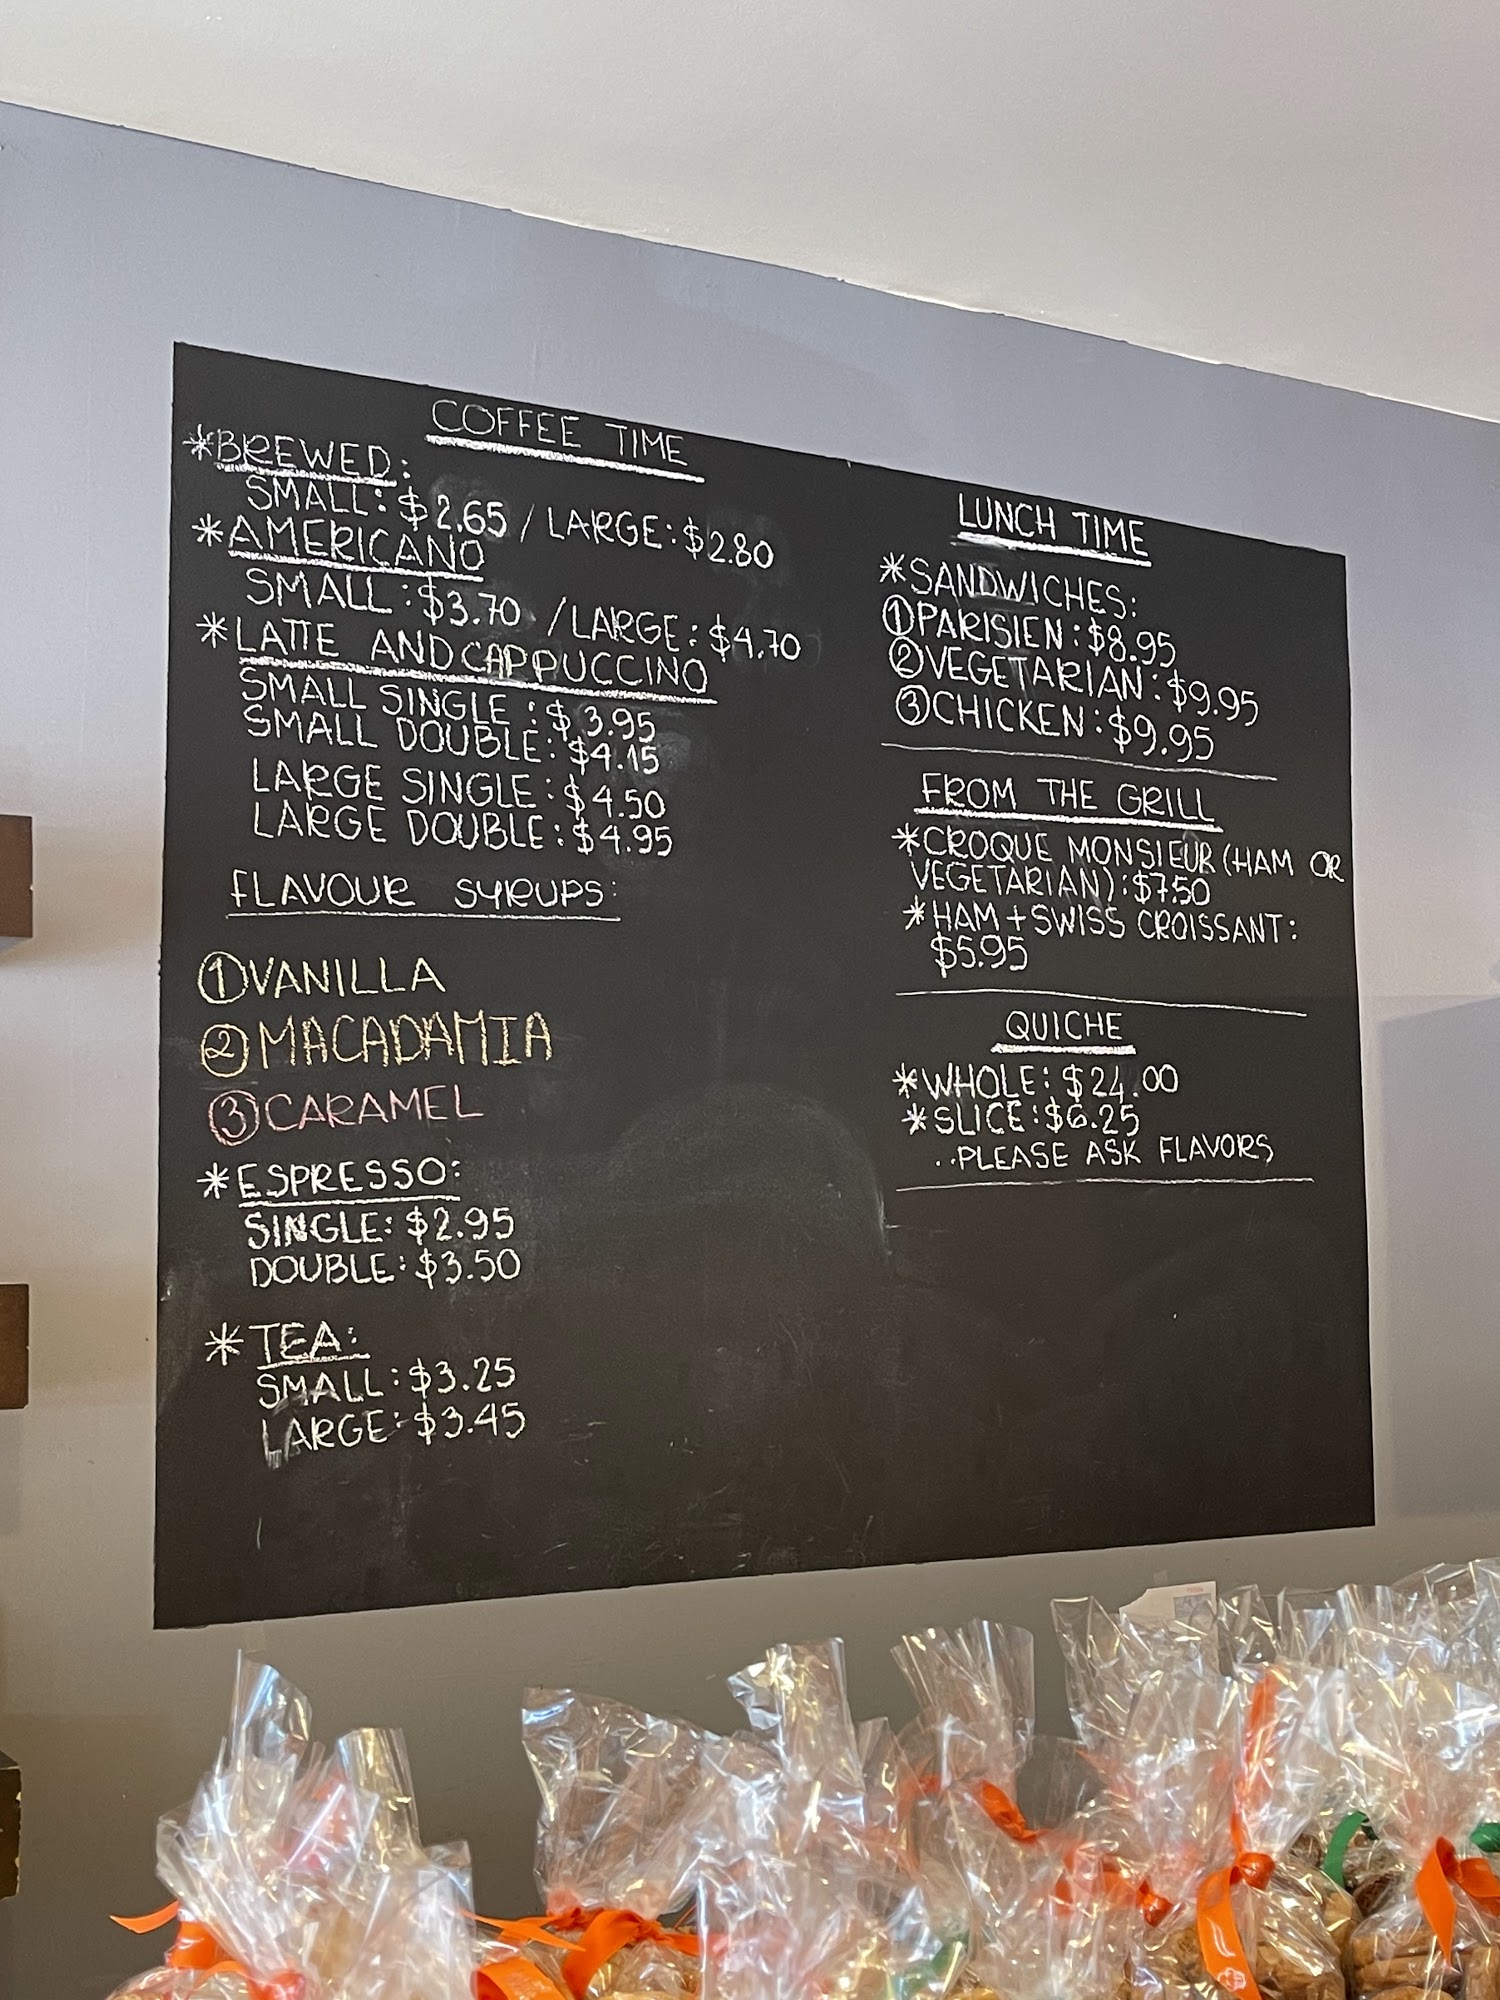 COFFEE TIME
*BREWED:
SMALL: $2.65 / LARGE: $2.80
*AMERICANO
SMALL: $3.70 / LARGE: $4.70
*LATTE AND CAPPUCCINO
SMALL SINGLE: $3.95
SMALL DOUBLE: $4.15
LARGE SINGLE: $4.50
LARGE DOUBLE: $4.95
FLAVOUR SYRUPS:
①VANILLA
②MACADAMIA
③CARAMEL
*ESPRESSO:
SINGLE: $2.95
DOUBLE: $3.50
*TEA:
SMALL: $3.25
LARGE: $3.45
LUNCH TIME
*SANDWICHES:
①PARISIEN: $8.95
②VEGETARIAN: $9.95
③CHICKEN: $9.95
FROM THE GRILL
*CROQUE MONSIEUR (HAM OR
VEGETARIAN): $7.50
*HAM + SWISS CROISSANT:
$5.95
QUICHE
*WHOLE: $24.00
*SLICE: $6.25
..PLEASE ASK FLAVORS